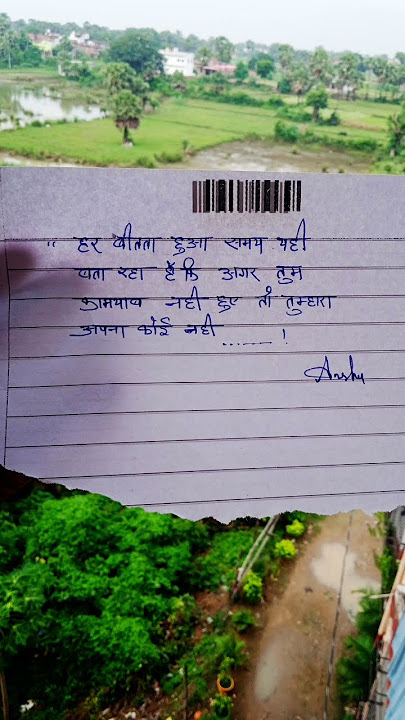 " हर बीतता हुआ समय यही
बता रहा है कि अगर तुम
कामयाब नही हुए तो तुम्हारा
अपना कोई नही ......— !
Anshu